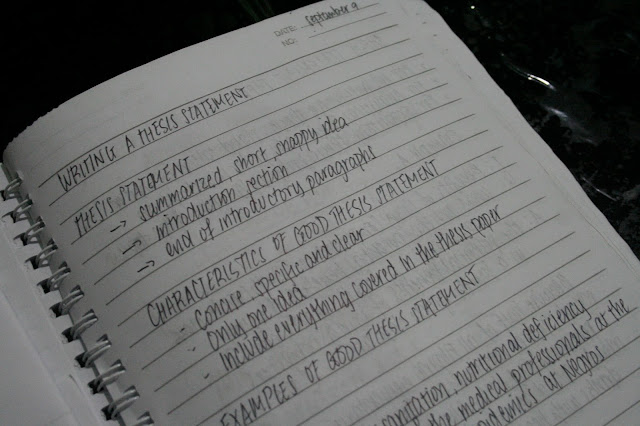 DATE: September 9
NO:
WRITING A THESIS STATEMENT
THESIS STATEMENT
→ summarized short, snappy idea
→ introduction section
→ end of introductory paragraphs
CHARACTERISTICS OF GOOD THESIS STATEMENT
- Concise specific and clear
- only one idea
- Include everything covered in the thesis paper
EXAMPLES OF GOOD THESIS STATEMENT
nutritional deficiency
the medical professionals at the
at Negros